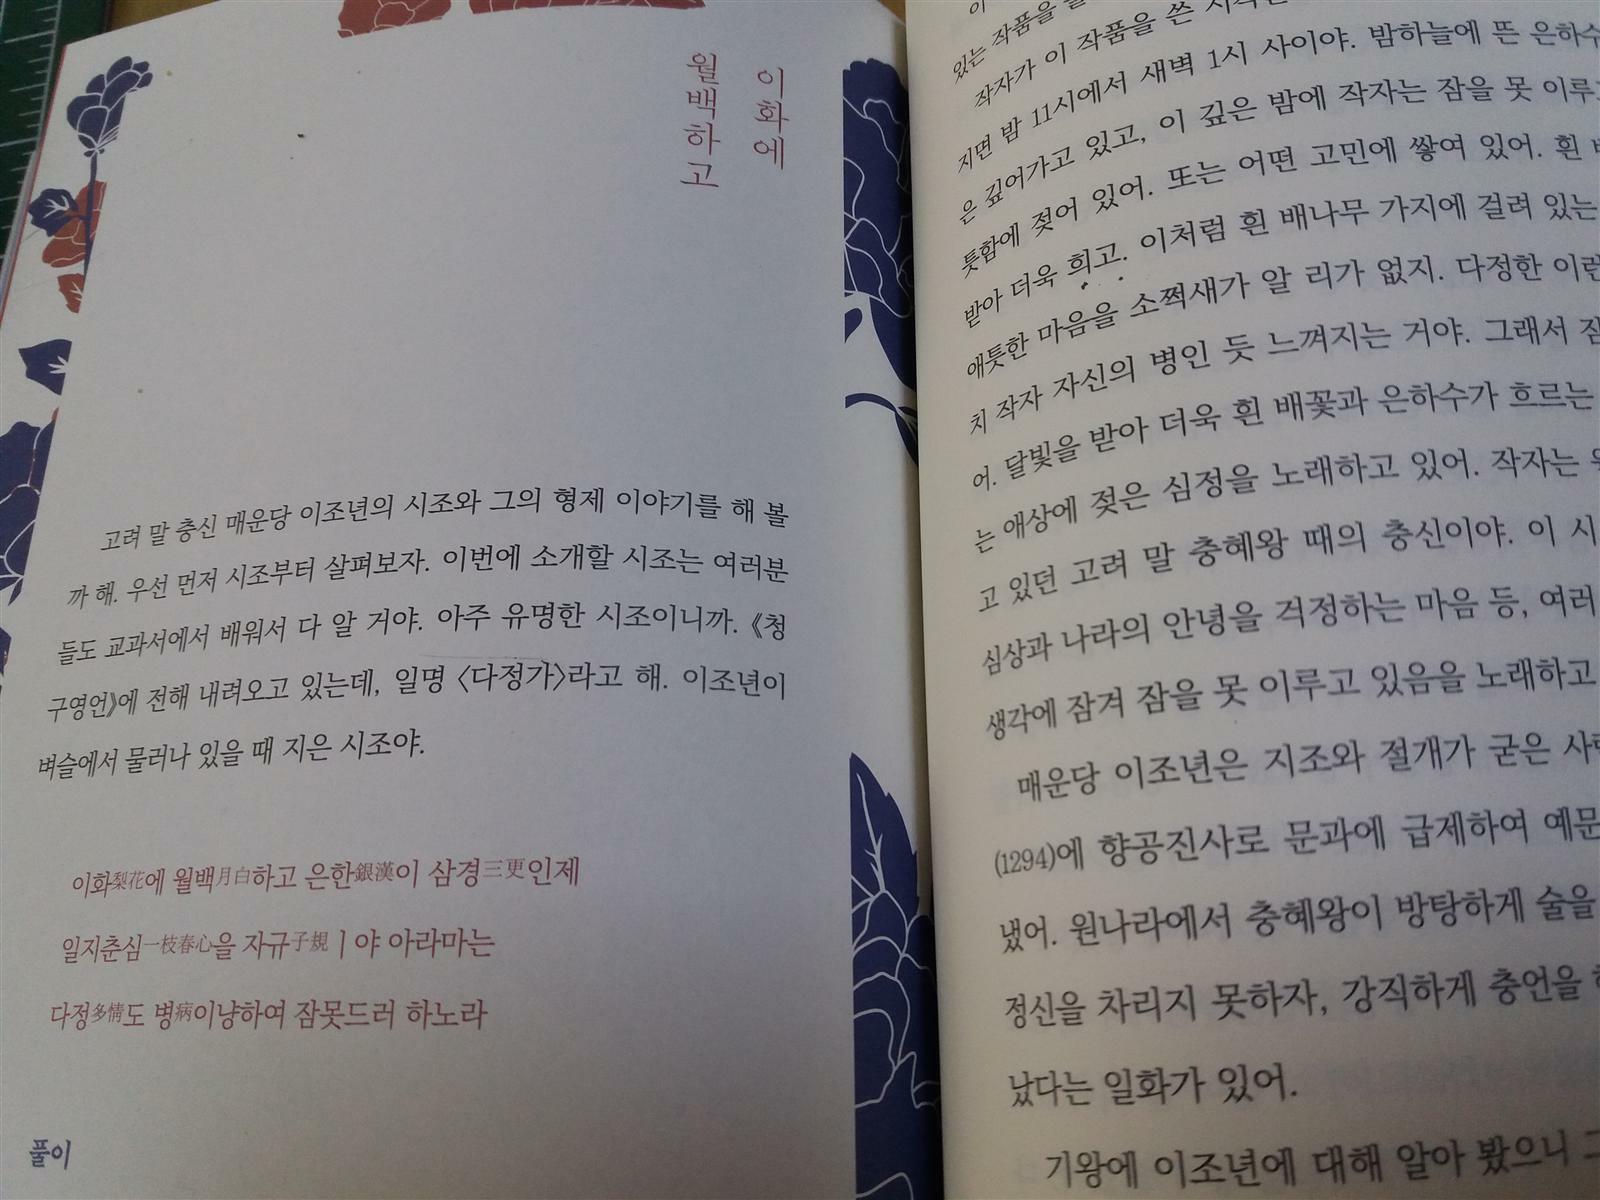 이화에
월백하고
고려 말 충신 매운당 이조년의 시조와 그의 형제 이야기를 해 볼
까 해. 우선 먼저 시조부터 살펴보자. 이번에 소개할 시조는 여러분
들도 교과서에서 배워서 다 알 거야. 아주 유명한 시조이니까. 《청
구영언》에 전해 내려오고 있는데, 일명 〈다정가〉라고 해. 이조년이
벼슬에서 물러나 있을 때 지은 시조야.
이화梨花에 월백月白하고 은한銀漢이 삼경三更인제
일지춘심一枝春心을 자규子規ㅣ야 아라마는
다정多情도 병病이냥하여 잠못드러 하노라
풀이
있는 작품을
작자가 이 작품을 쓴
지면 밤 11시에서 새벽 1시 사이야. 밤하늘에 뜬 은하수
은 깊어가고 있고, 이 깊은 밤에 작자는 잠을 못 이루
틋함에 젖어 있어. 또는 어떤 고민에 쌓여 있어. 흰
받아 더욱 희고. 이처럼 흰 배나무 가지에 걸려 있는
애틋한 마음을 소쩍새가 알 리가 없지. 다정한 이런
치 작자 자신의 병인 듯 느껴지는 거야. 그래서
어. 달빛을 받아 더욱 흰 배꽃과 은하수가 흐르는
는 애상에 젖은 심정을 노래하고 있어. 작자는
고 있던 고려 말 충혜왕 때의 충신이야. 이 시
심상과 나라의 안녕을 걱정하는 마음 등, 여러
생각에 잠겨 잠을 못 이루고 있음을 노래하고
매운당 이조년은 지조와 절개가 굳은
(1294)에 향공진사로 문과에 급제하여 예문
냈어. 원나라에서 충혜왕이 방탕하게 술을
정신을 차리지 못하자, 강직하게 충언을
났다는 일화가 있어.
기왕에 이조년에 대해 알아 봤으니